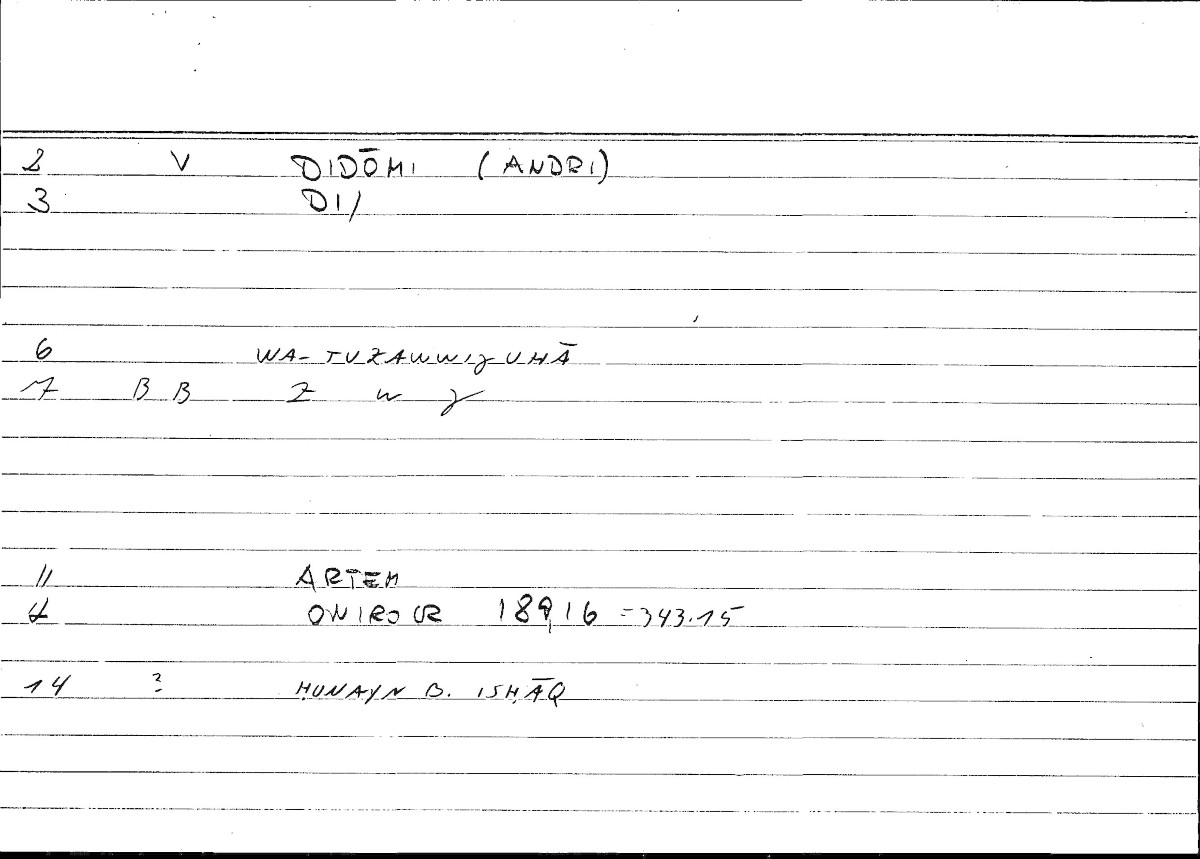 2 V DIDŌMI (ANDRI)
3 DI/
6 WA-TUZAWWIǧUHĀ
7 BB Z W ǧ
11 ARTEM
ONIROCR 189,16 =343.15
14 ? ḤUNAYN B. ISḤĀQ